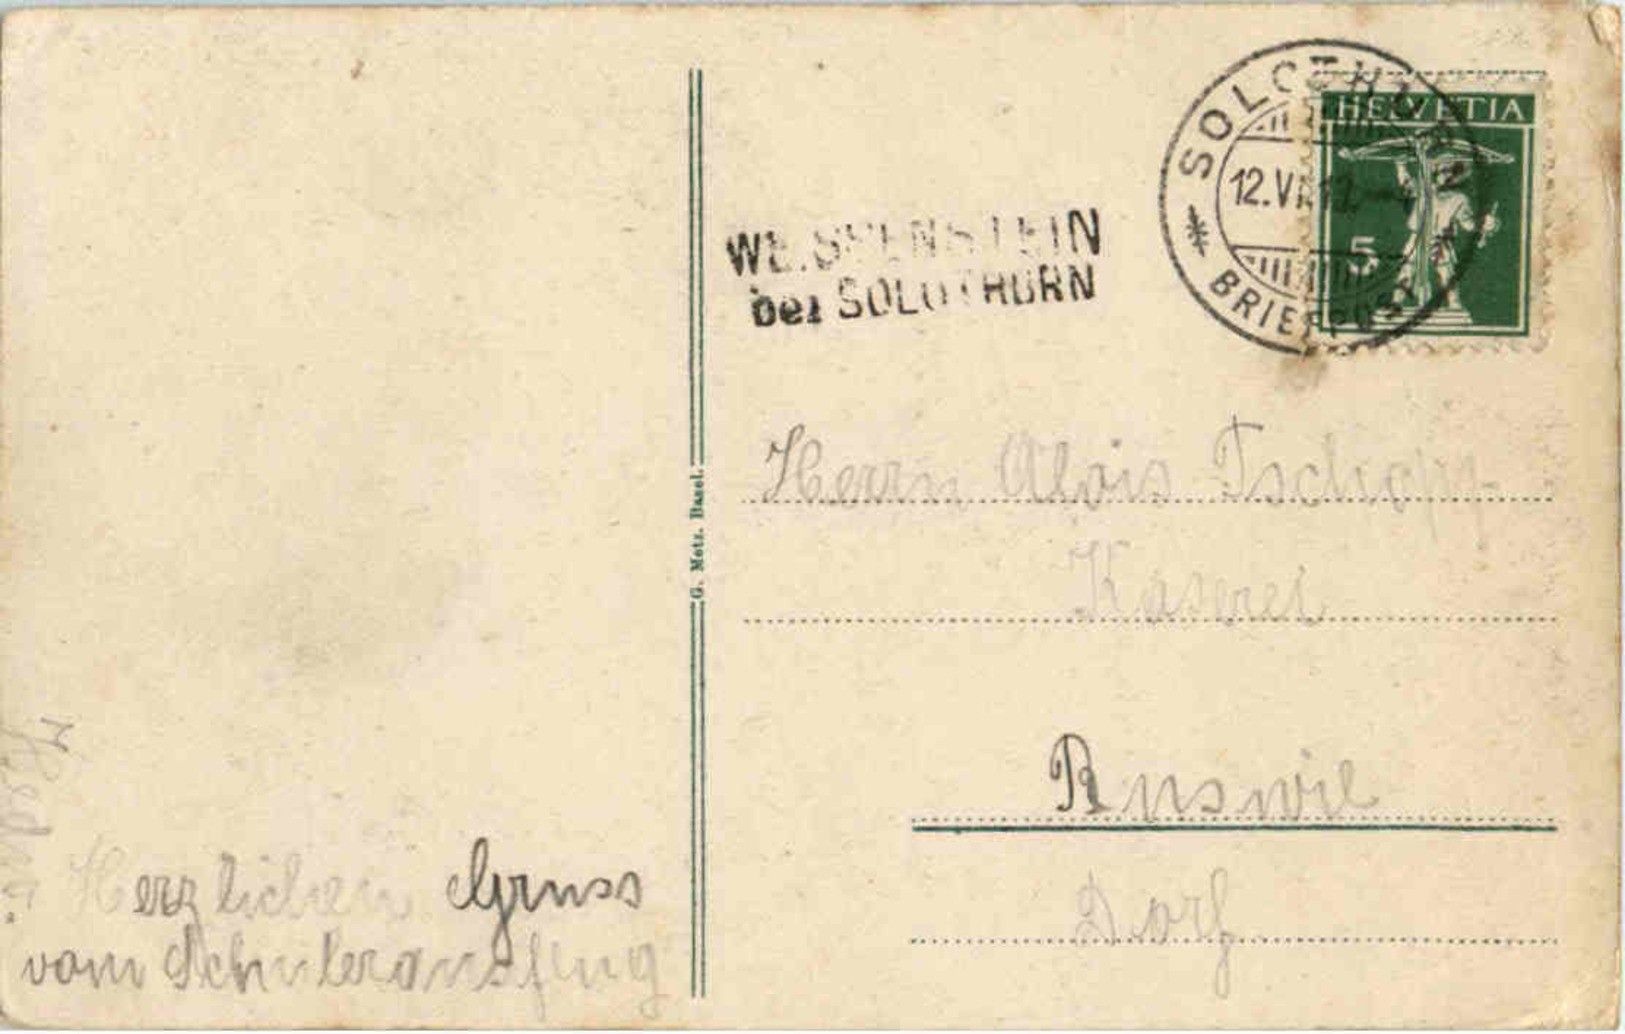 SOLOTHURN
HELVETIA
12.VI
5
BRIEFPOST
WEISSENSTEIN
bei SOLOTHURN
G. Metz. Basel.
Herrn Alois Tschopp
Käserei
Ruswil
Dorf
Herzlichen Gruss
vom Schülerausflug